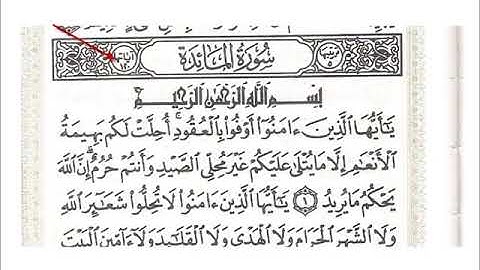 ترتيبها ٥ سُورَةُ المَائِدَةِ آياتها ١٢٠
بِسْمِ اللَّهِ الرَّحْمَٰنِ الرَّحِيمِ
يَٰٓأَيُّهَا ٱلَّذِينَ ءَامَنُوٓا۟ أَوْفُوا۟ بِٱلْعُقُودِ ۚ أُحِلَّتْ لَكُم بَهِيمَةُ
ٱلْأَنْعَٰمِ إِلَّا مَا يُتْلَىٰ عَلَيْكُمْ غَيْرَ مُحِلِّى ٱلصَّيْدِ وَأَنتُمْ حُرُمٌ ۗ إِنَّ ٱللَّهَ
يَحْكُمُ مَا يُرِيدُ ١ يَٰٓأَيُّهَا ٱلَّذِينَ ءَامَنُوا۟ لَا تُحِلُّوا۟ شَعَٰٓئِرَ ٱللَّهِ
وَلَا ٱلشَّهْرَ ٱلْحَرَامَ وَلَا ٱلْهَدْىَ وَلَا ٱلْقَلَٰٓئِدَ وَلَآ ءَآمِّينَ ٱلْبَيْتَ